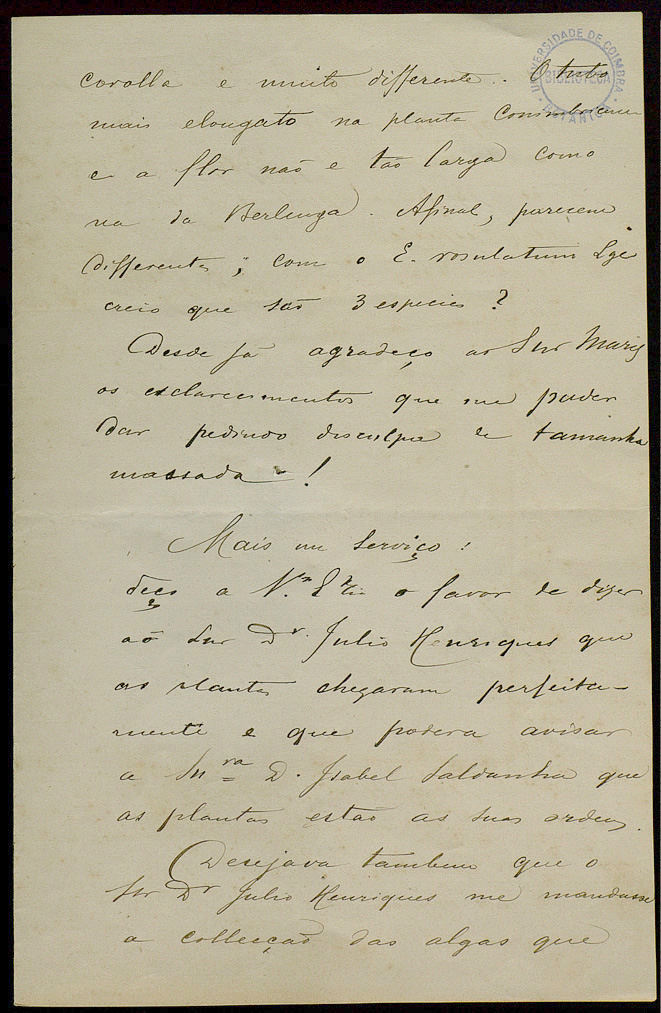 UNIVERSIDADE DE COIMBRA
BIBLIOTECA
BOTANICA
corolla e muito differente. O tubo
mais elongato na planta conimbricense
e a flor não e tão larga como
na da Berlenga. Afinal, parecem
differentes; com o E. rosulatum Lge
creio que são 3 especies?
Desde já agradeço ao Snr Mariz
os esclarecimentos que me poder
dar pedindo desculpe de tamanha
massada!
Mais um serviço:
Peço a V.ª Ex.cia o favor de dizer
aõ Snr Dr Julio Henriques que
as plantas chegaram perfeita-
mente e que podera avisar
a Snra D. Isabel Saldanha que
as plantas estão as suas ordens.
Desejava tambem que o
Snr Dr Julio Henriques me mandasse
a collecção das algas que